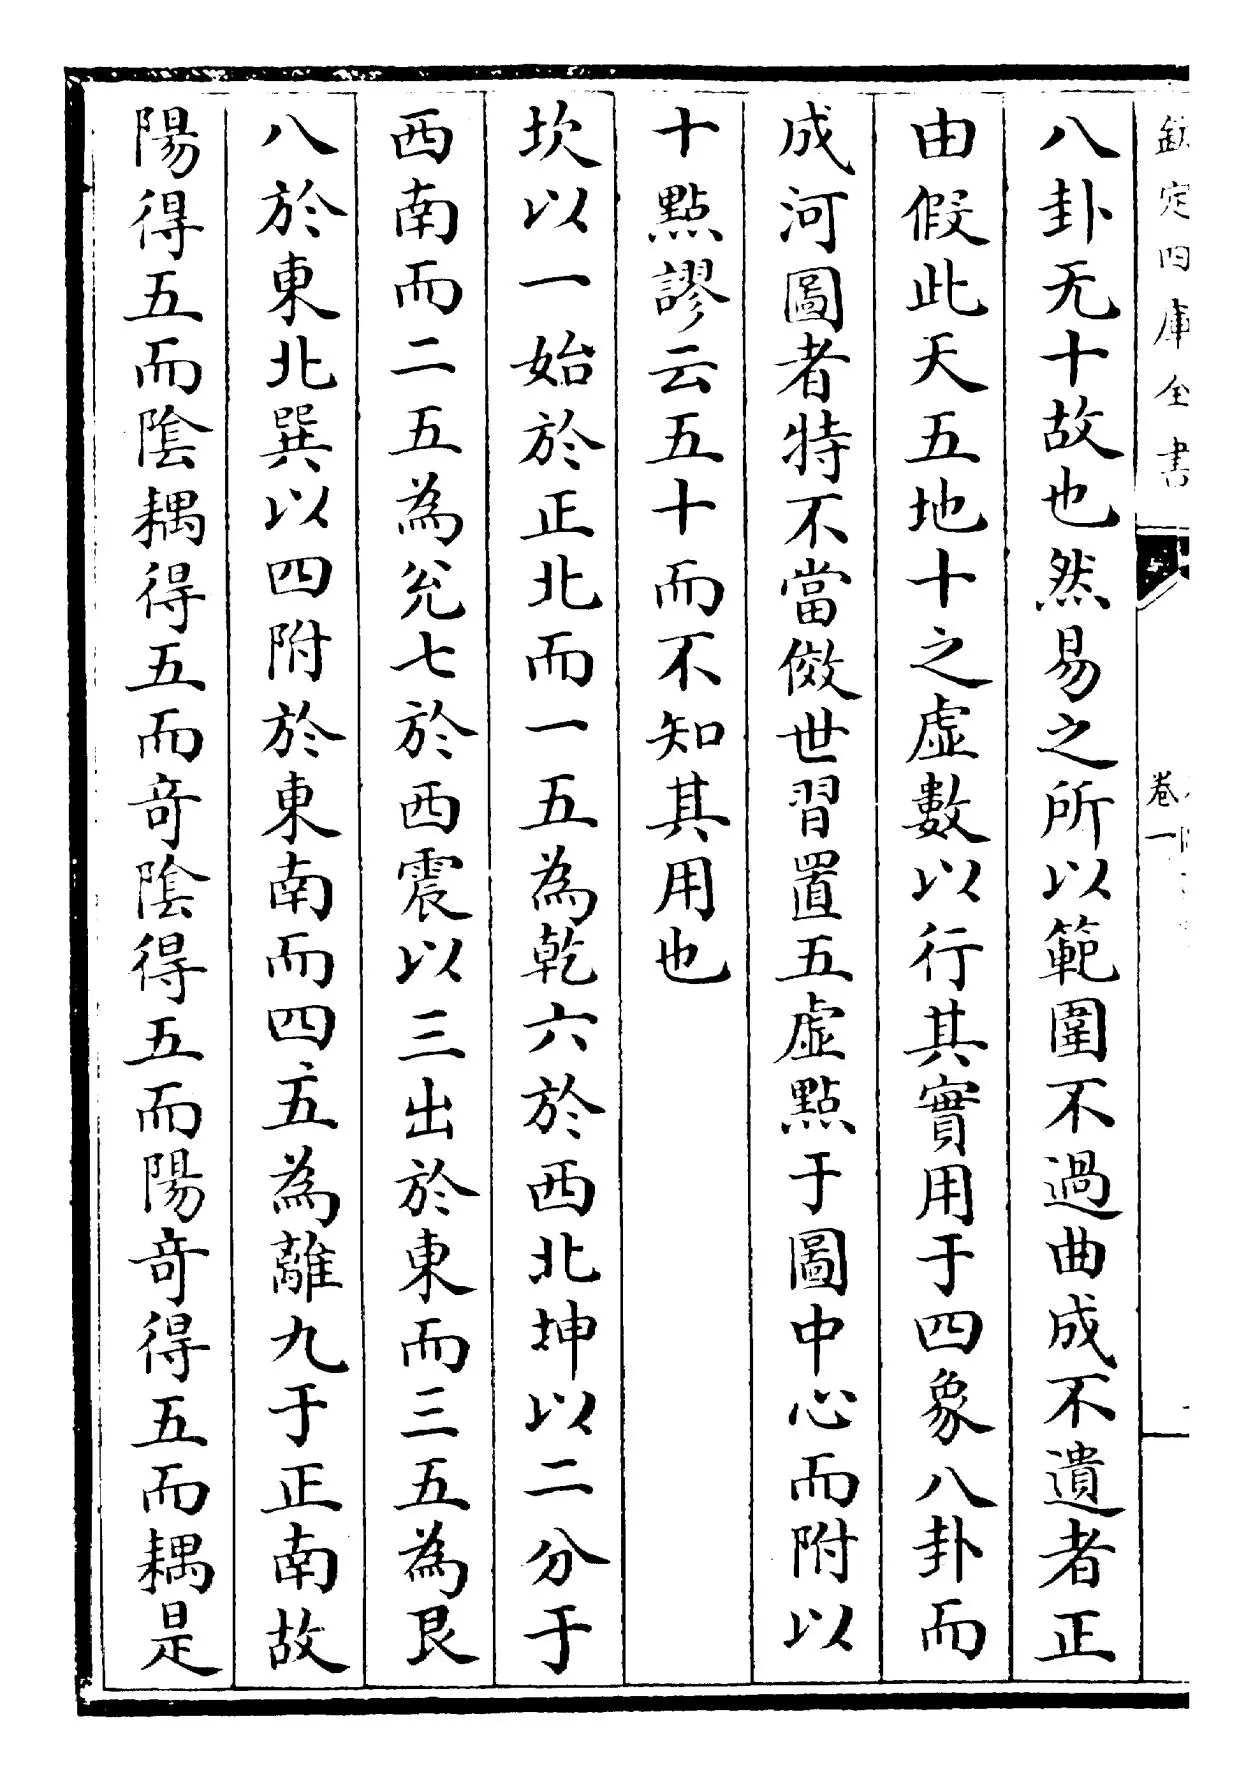 欽定四庫全書
卷一
八卦无十故也然易之所以範圍不過曲成不遺者正
由假此天五地十之虛數以行其實用于四象八卦而
成河圖者特不當倣世習置五虛點于圖中心而附以
十點謬云五十而不知其用也
坎以一始於正北而一五為乾六於西北坤以二分于
西南而二五為兊七於西震以三出於東而三五為艮
八於東北巽以四附於東南而四五為離九于正南故
陽得五而陰耦得五而奇陰得五而陽奇得五而耦是